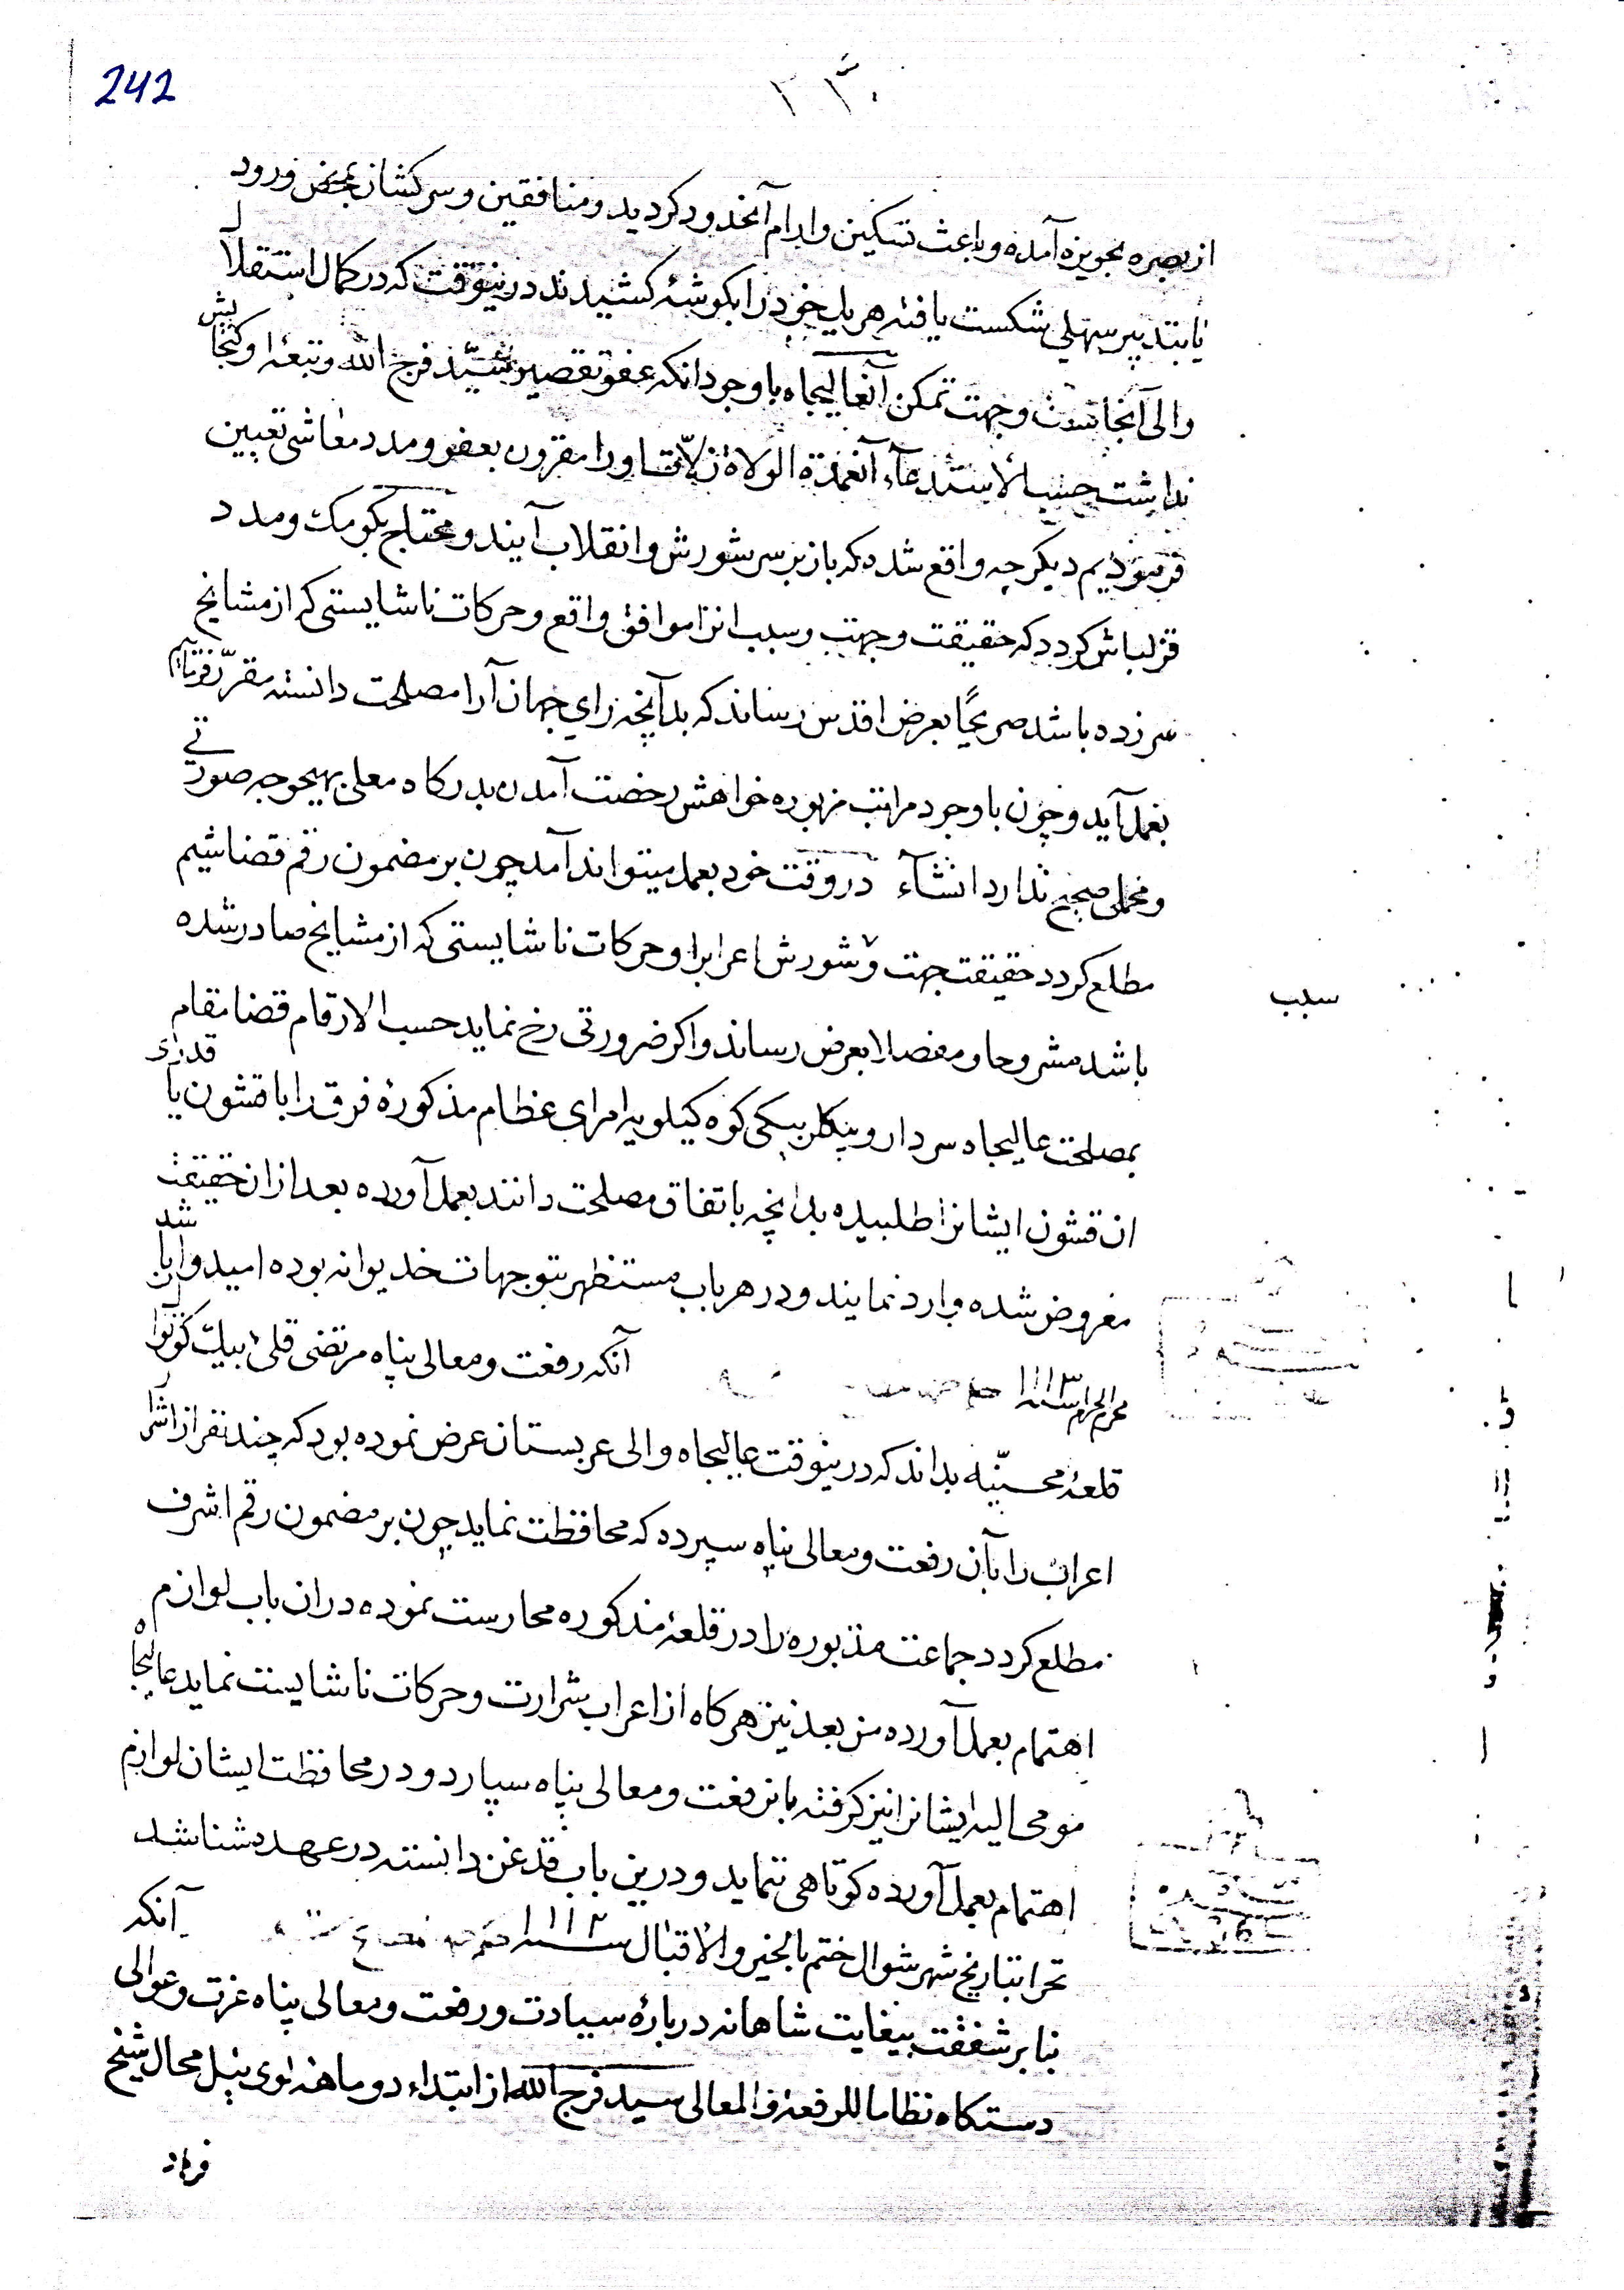 242
۲۳۰
از بصره بحویزه آمده و باعث تسکین و ارام آنحدود کردید و منافقین و سرکشان بمحض ورود
یا بتدبیر سهلی شکست یافته هریک خود را بکوشهٔ کشیدند درینوقت که در کمال استقلال
والی آنجاست و جهت تمکن آنعالیجاه با وجود انکه عفو تقصیر سید فرج الله و تبعهٔ او کنجایش
نداشت حسب الاستدعاء آنعمدة الولاة زلات او را مقرون بعفو و مدد معاشی تعیین
فرمودیم دیکر چه واقع شده که باز بر سر شورش و انقلاب آیند و محتاج بکومک و مدد
قزلباش کردد که حقیقت و جهت و سبب انرا موافق واقع و حرکات ناشایستی که از مشایخ
سرزده باشد صریحاً بعرض اقدس رساند که بدآنچه رای جهان آرا مصلحت دانسته مقرر فرمائیم
بعمل آید و چون با وجود مراتب مزبوره خواهش رخصت آمدن بدرکاه معلی بهیچوجه صورتی
و محملی صحیح ندارد انشآء در وقت خود بعمل میتواند آمد چون بر مضمون رقم قضا شیم
مطلع کردد حقیقت جهت و شورش اعراب را و حرکات ناشایستی که از مشایخ صادر شده
سبب
باشد مشروحا و مفصلا بعرض رساند و اکر ضرورتی رخ نماید حسب الارقام قضا مقام
بمصلحت عالیجاه سردار و بیکلربیکی کوه کیلویه امرای عظام مذکورهٔ فوق را با قشون یا قدری
ان قشون ایشانرا طلبیده بدانچه باتفاق مصلحت دانند بعمل آورده بعد از ان حقیقت
معروض شده وارد نمایند و در هر باب مستظهر بتوجهات خدیوانه بوده امیدوار باشد
محرم الحرام سنه ۱۱۱۳
آنکه رفعت و معالی پناه مرتضی قلی بیک کوتوال
قلعهٔ محسنیه بداند که درینوقت عالیجاه والی عربستان عرض نموده بود که چند نفر از اشرار
اعراب را بآن رفعت و معالی پناه سپرده که محافظت نماید چون بر مضمون رقم اشرف
مطلع کردد جماعت مذبوره را در قلعهٔ مذکوره محارست نموده در ان باب لوازم
اهتمام بعمل آورده من بعد نیز هرکاه از اعراب شرارت و حرکات ناشایست نماید عالیجاه
مومی الیه ایشانرا نیز کرفته بانرفعت و معالی پناه سپارد و در محافظت ایشان لوازم
اهتمام بعمل آورده کوتاهی ننماید و درین باب قدغن دانسته در عهده شناسد
تحرا بتاریخ شهر شوال ختم بالخیر و الاقبال سنه ۱۱۱۲
آنکه
بنابر شفقت بیغایت شاهانه دربارهٔ سیادت و رفعت و معالی پناه عزت و عوالی
دستکاه نظاما للرفعة و المعالی سید فرج الله از ابتداء دو ماهه نوی ئیل محال شیخ
فرهاد